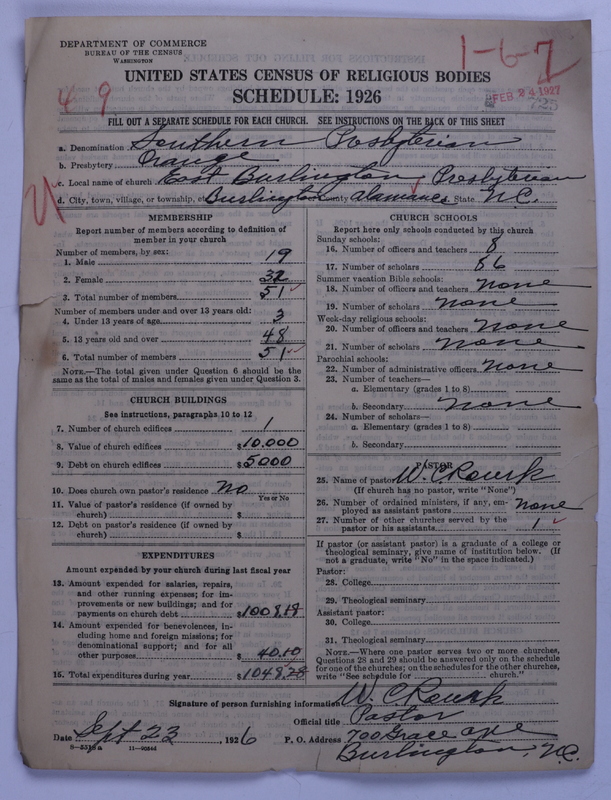 DEPARTMENT OF COMMERCE
BUREAU OF THE CENSUS
WASHINGTON
1-6-7
49
UNITED STATES CENSUS OF RELIGIOUS BODIES
SCHEDULE: 1926
FEB 24 1927
FILL OUT A SEPARATE SCHEDULE FOR EACH CHURCH. SEE INSTRUCTIONS ON THE BACK OF THIS SHEET
a. Denomination Southern Presbyterian
b. Presbytery Orange
c. Local name of church East Burlington Presbyterian
d. City, town, village, or township, of Burlington County Alamance State N.C.
MEMBERSHIP
Report number of members according to definition of
member in your church
Number of members, by sex:
1. Male 19
2. Female 32
3. Total number of members 51
Number of members under and over 13 years old:
4. Under 13 years of age 3
5. 13 years old and over 48
6. Total number of members 51
NOTE.—The total given under Question 6 should be the
same as the total of males and females given under Question 3.
CHURCH BUILDINGS
See instructions, paragraphs 10 to 12
7. Number of church edifices 1
8. Value of church edifices $10.000
9. Debt on church edifices $5000
10. Does church own pastor's residence No
Yes or No
11. Value of pastor's residence (if owned by
church) $
12. Debt on pastor's residence (if owned by
church) $
EXPENDITURES
Amount expended by your church during last fiscal year
13. Amount expended for salaries, repairs,
and other running expenses; for im-
provements or new buildings; and for
payments on church debt $1008.18
14. Amount expended for benevolences, in-
cluding home and foreign missions; for
denominational support; and for all
other purposes $40.10
15. Total expenditures during year $1048.28
CHURCH SCHOOLS
Report here only schools conducted by this church
Sunday schools:
16. Number of officers and teachers 8
17. Number of scholars 86
Summer vacation Bible schools:
18. Number of officers and teachers none
19. Number of scholars none
Week-day religious schools:
20. Number of officers and teachers none
21. Number of scholars none
Parochial schools:
22. Number of administrative officers none
23. Number of teachers—
a. Elementary (grades 1 to 8)
b. Secondary none
24. Number of scholars—
a. Elementary (grades 1 to 8)
b. Secondary
PASTOR
25. Name of pastor W. C. Rourk
(If church has no pastor, write "None")
26. Number of ordained ministers, if any, em-
ployed as assistant pastors none
27. Number of other churches served by the
pastor or his assistants 1
If pastor (or assistant pastor) is a graduate of a college or
theological seminary, give name of institution below. (If
not a graduate, write "No" in the space indicated.)
Pastor:
28. College
29. Theological seminary
Assistant pastor:
30. College
31. Theological seminary
NOTE.—Where one pastor serves two or more churches,
Questions 28 and 29 should be answered only on the schedule
for one of the churches; on the schedules for the other churches,
write "See schedule for church."
Signature of person furnishing information W. C. Rourk
Official title Pastor
Date Sept 23, 1926 P. O. Address 700 Grace ave
Burlington, N.C.
8-551a 11-90546